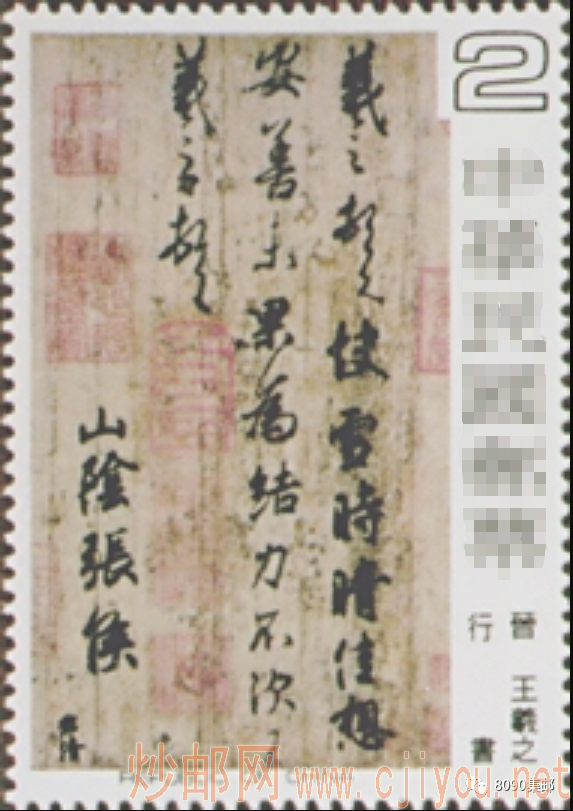 2
晉 王羲之
行 書
羲之頓首快雪時晴佳想
安善未果為結力不次王
羲之頓首
山陰張侯
炒邮网 www.cjiyou.net
8090集邮